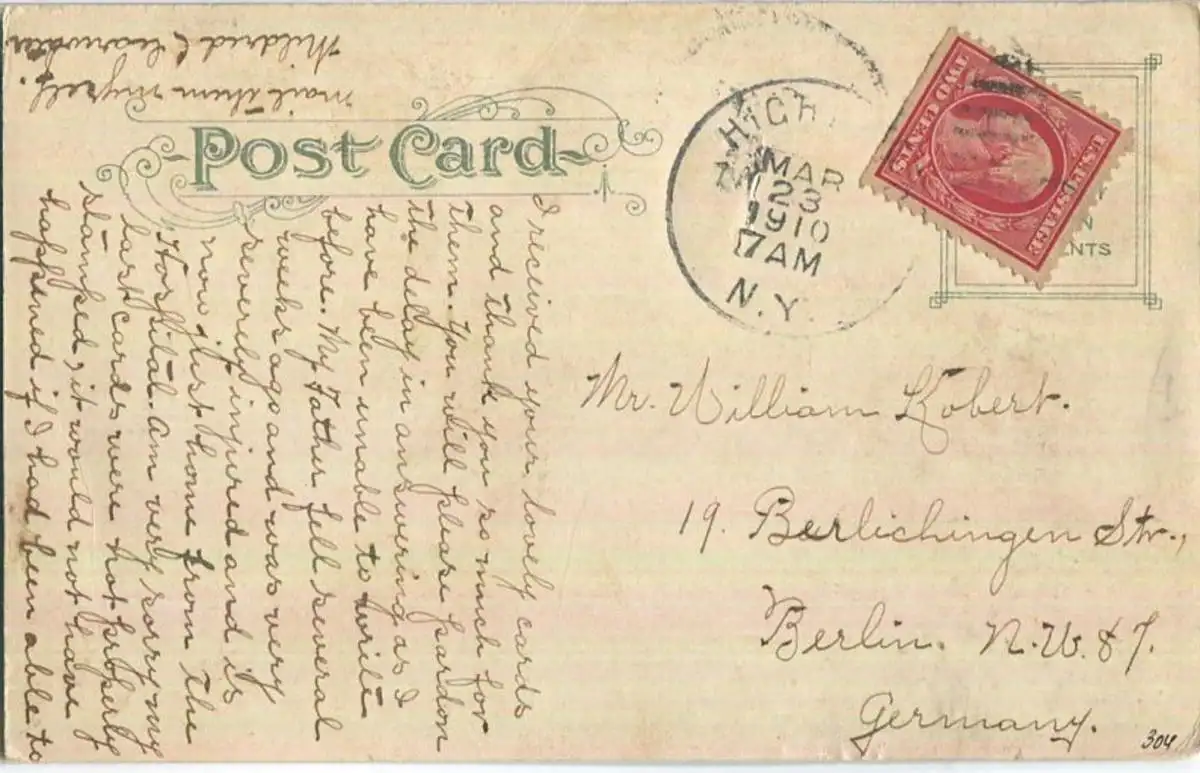 Post Card
HIGH
MAR
23
1910
7 AM
N.Y.
TWO CENTS
U.S. POSTAGE
I received your lovely cards
and thank you so much for
them. You will please pardon
the delay in answering as I
have been unable to write
before. My Father fell several
weeks ago and was very
severely injured and is
now just home from the
Hospital. Am very sorry my
last cards were not properly
stamped, it would not have
happened if I had been able to
mail them myself.
Mildred
Mr. William Kobert.
19. Berlichingen Str.,
Berlin. N.W. 87.
Germany.
304